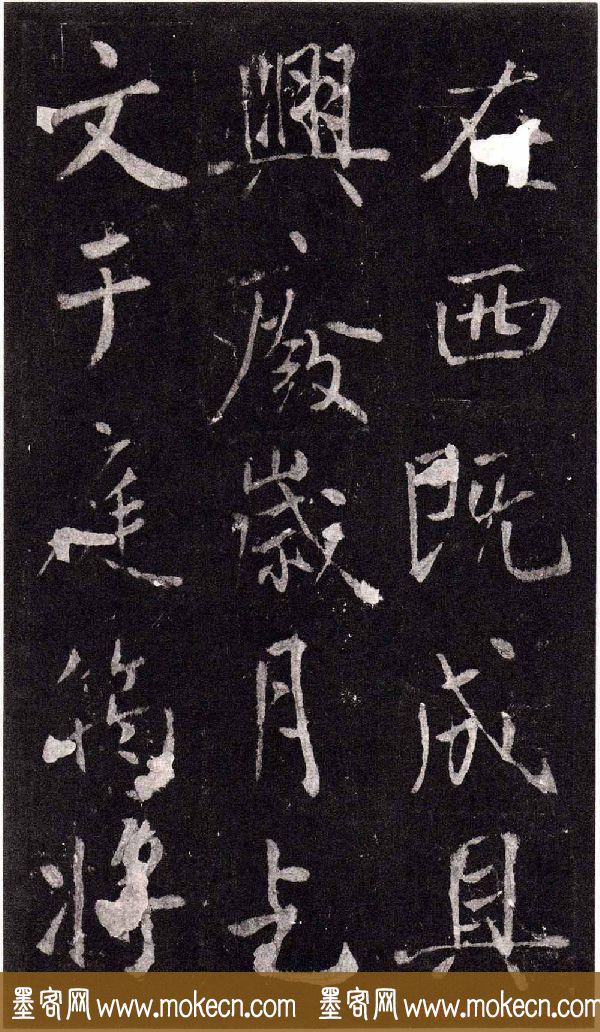 在西既成具
興廢歲月乞
文于庭筠將
墨客网 www.mokecn.com 墨客网 www.mokecn.com